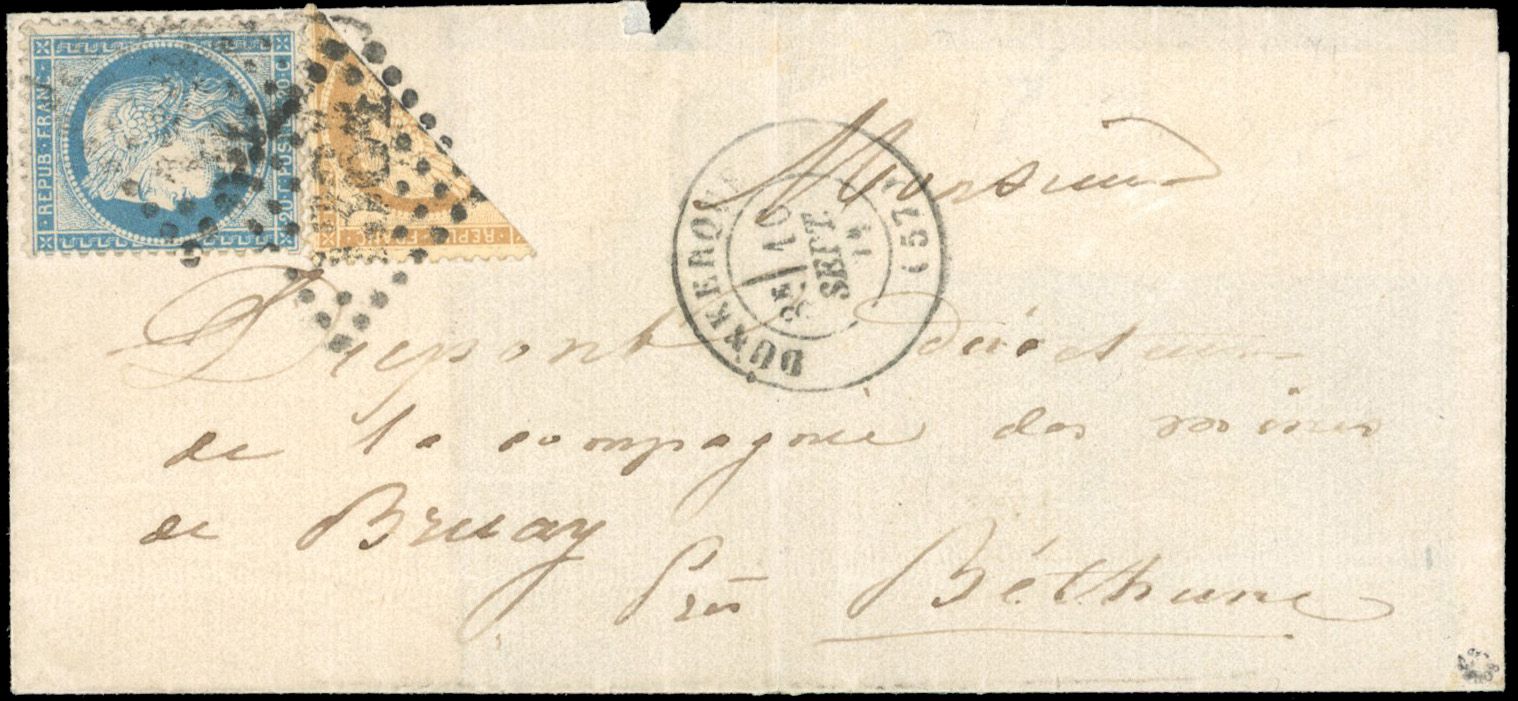 REPUB · FRANC
20 · C
20 · C POSTE
REPUB · FRANC
DUNKERQUE (57)
3E / 10
SEPT
71
Monsieur
Dupont Directeur
de la compagnie des mines
de Bruay
Près Béthune